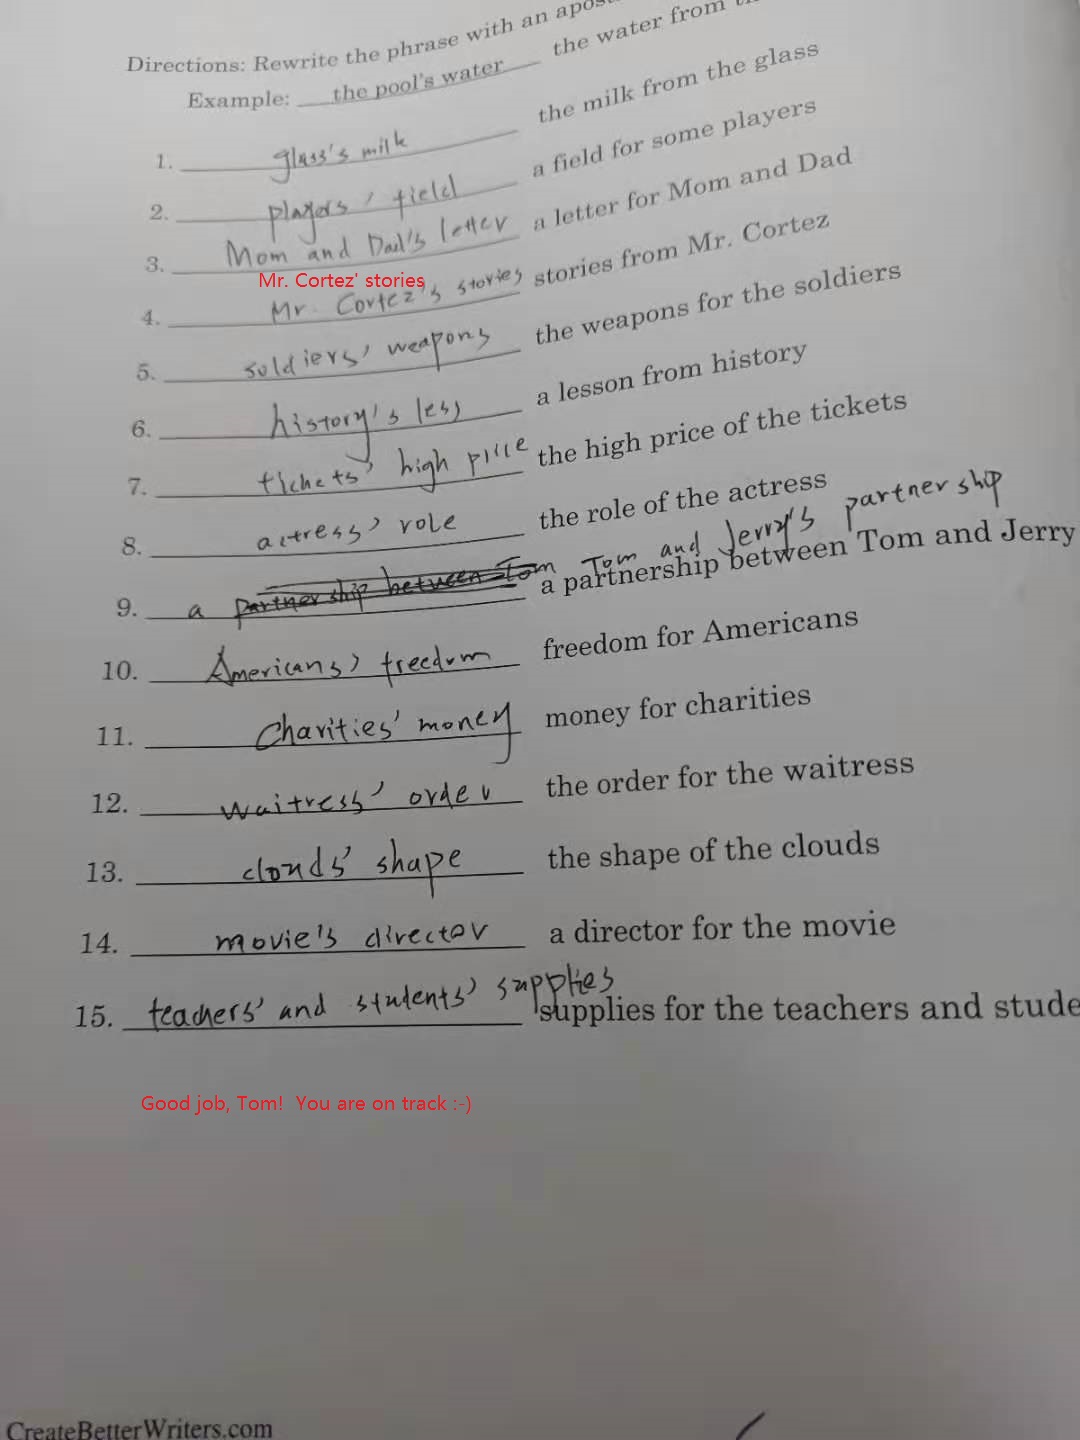 Directions: Rewrite the phrase with an
Example: the pool's water the water from
1. glass's milk the milk from the glass
2. players' field a field for some players
3. Mom and Dad's letter a letter for Mom and Dad
Mr. Cortez' stories
4. Mr. Cortez's stories stories from Mr. Cortez
5. soldiers' weapons the weapons for the soldiers
6. history's less a lesson from history
7. tickets' high price the high price of the tickets
8. actress' role the role of the actress
Tom and Jerry's partnership
9. a partnership between Tom a partnership between Tom and Jerry
10. Americans' freedom freedom for Americans
11. Charities' money money for charities
12. waitress' order the order for the waitress
13. clouds' shape the shape of the clouds
14. movie's director a director for the movie
15. teachers' and students' supplies supplies for the teachers and stude
Good job, Tom! You are on track :-)
CreateBetterWriters.com